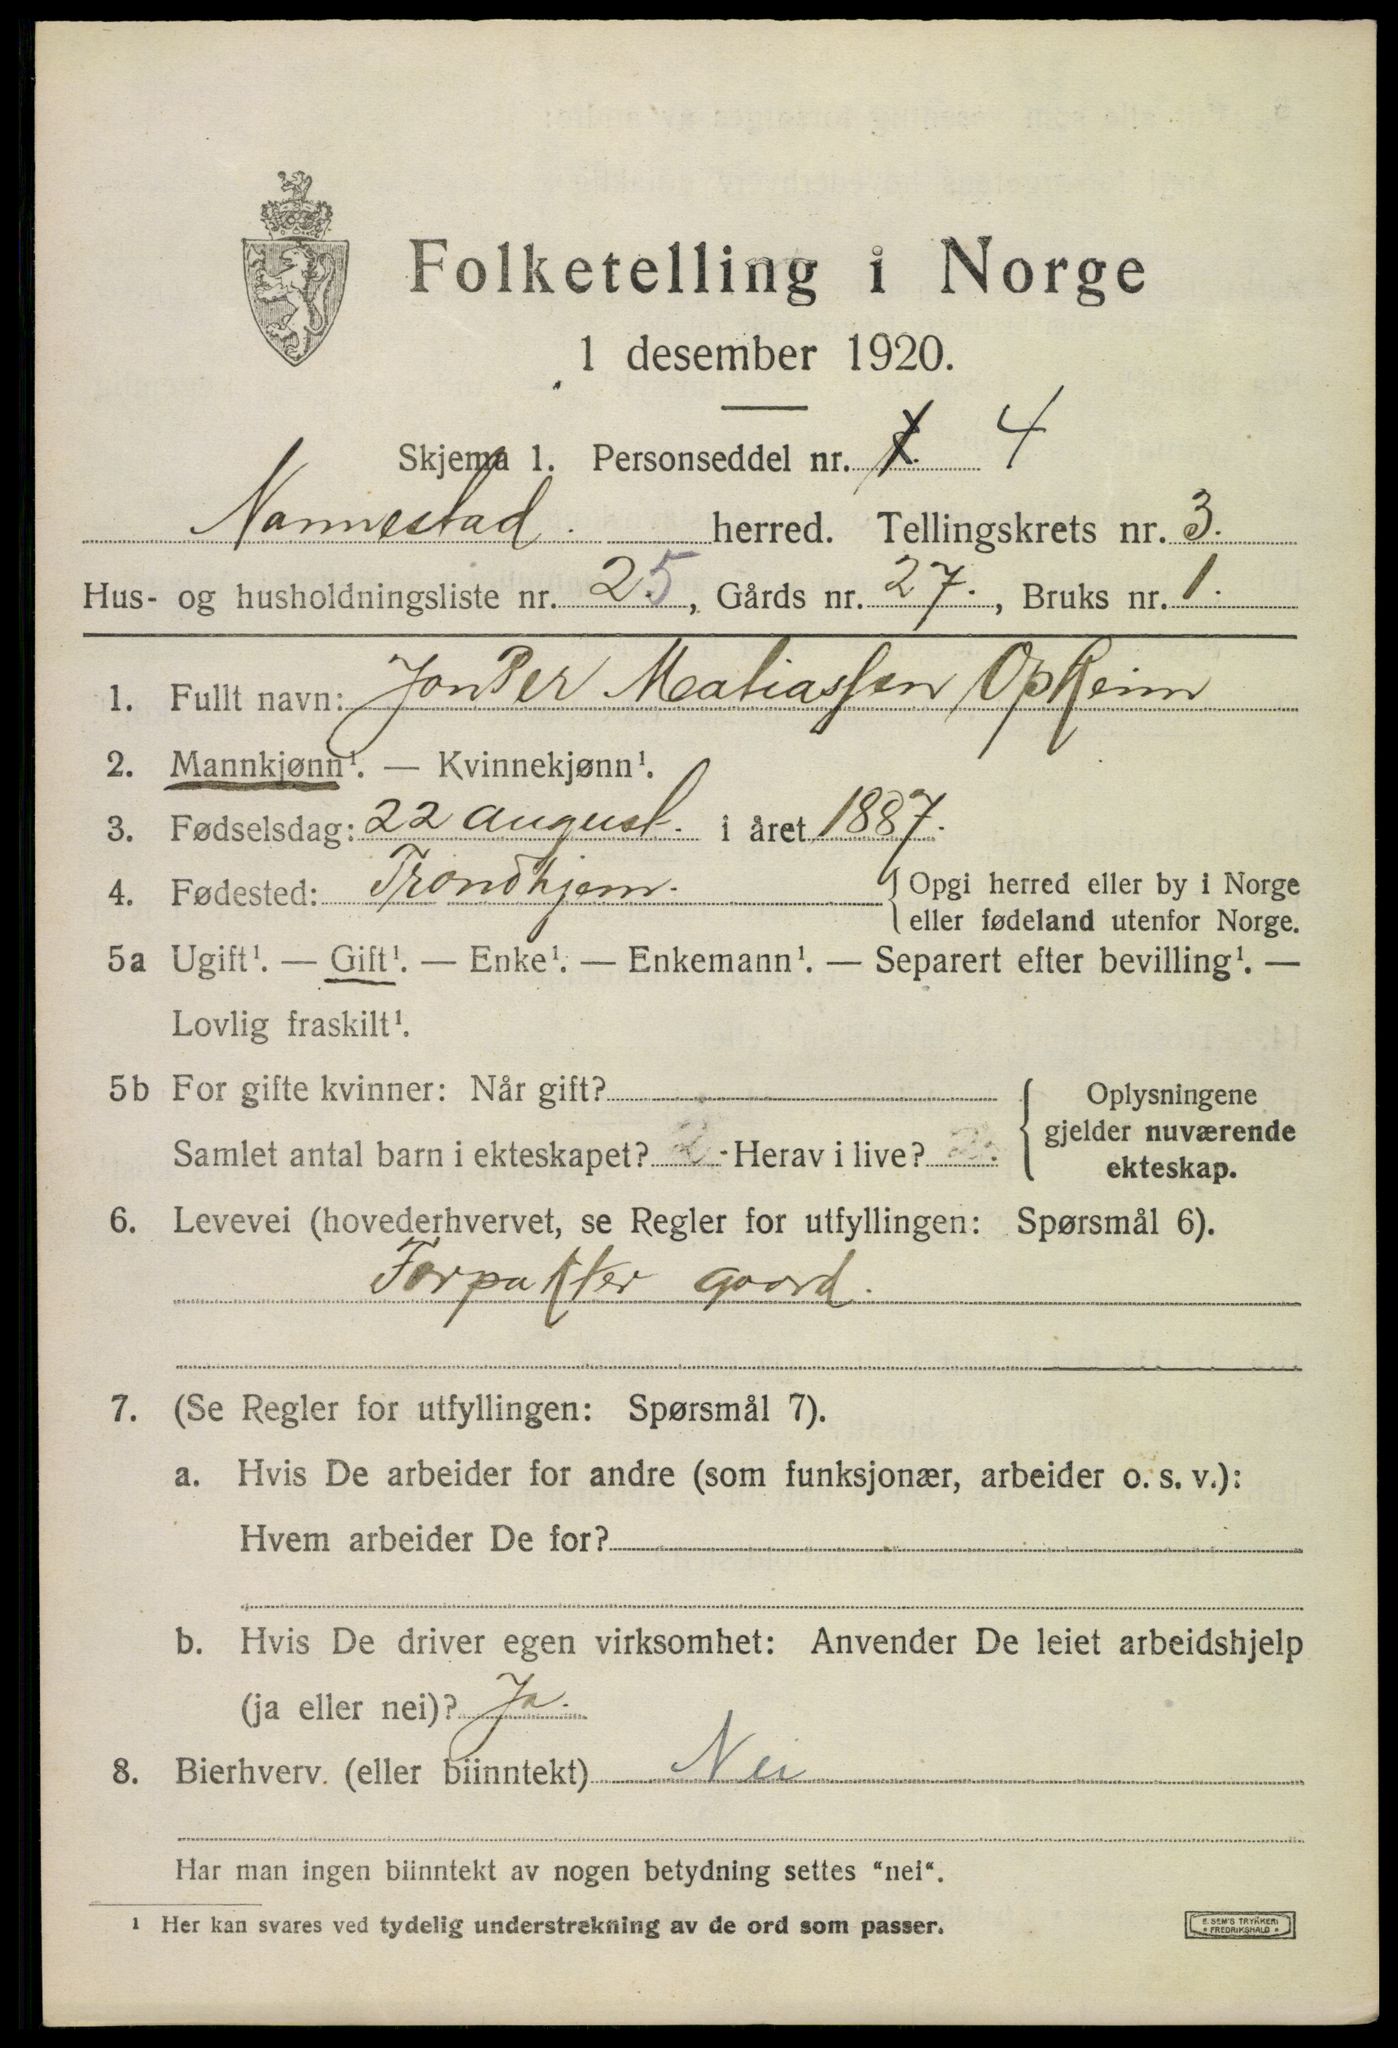 Folketelling i Norge
1 desember 1920.
Skjema 1. Personseddel nr. 4
Nannestad. herred. Tellingskrets nr. 3.
Hus- og husholdningsliste nr. 25, Gårds nr. 27., Bruks nr. 1.
1. Fullt navn: Jon Per Matiassen Opheim
2. Mannkjønn¹. — Kvinnekjønn¹.
3. Fødselsdag: 22 august. i året 1887.
4. Fødested: Trondhjem. { Opgi herred eller by i Norge
eller fødeland utenfor Norge.
5a Ugift¹. — Gift¹. — Enke¹. — Enkemann¹. — Separert efter bevilling¹. —
Lovlig fraskilt¹.
5b For gifte kvinner: Når gift? { Oplysningene
gjelder nuværende
Samlet antal barn i ekteskapet? 2 - Herav i live? 2.
ekteskap.
6. Levevei (hovederhvervet, se Regler for utfyllingen: Spørsmål 6).
Forpakter gaard.
7. (Se Regler for utfyllingen: Spørsmål 7).
a. Hvis De arbeider for andre (som funksjonær, arbeider o. s. v.):
Hvem arbeider De for?
b. Hvis De driver egen virksomhet: Anvender De leiet arbeidshjelp
(ja eller nei)? Ja.
8. Bierhverv. (eller biinntekt) Nei
Har man ingen biinntekt av nogen betydning settes "nei".
1 Her kan svares ved tydelig understrekning av de ord som passer.
E. SEM'S TRYKKERI
* FREDRIKSHALD *